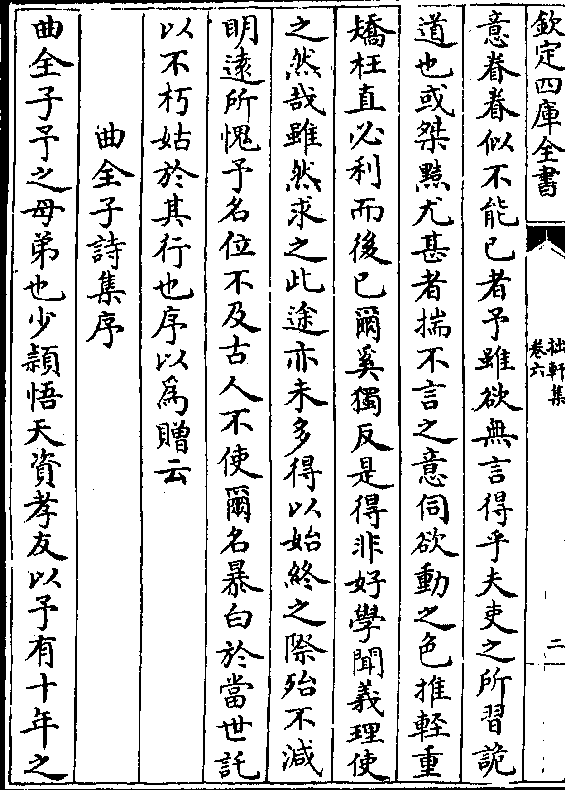 欽定四庫全書
拙軒集
卷六
二
意眷眷似不能已者予雖欲無言得乎夫吏之所習詭
道也或桀黠尤甚者揣不言之意伺欲動之色推輕重
矯枉直必利而後已爾奚獨反是得非好學聞義理使
之然哉雖然求之此途亦未多得以始終之際殆不減
明遠所愧予名位不及古人不使爾名暴白於當世託
以不朽姑於其行也序以為贈云
曲全子詩集序
曲全子予之母弟也少穎悟天資孝友以予有十年之